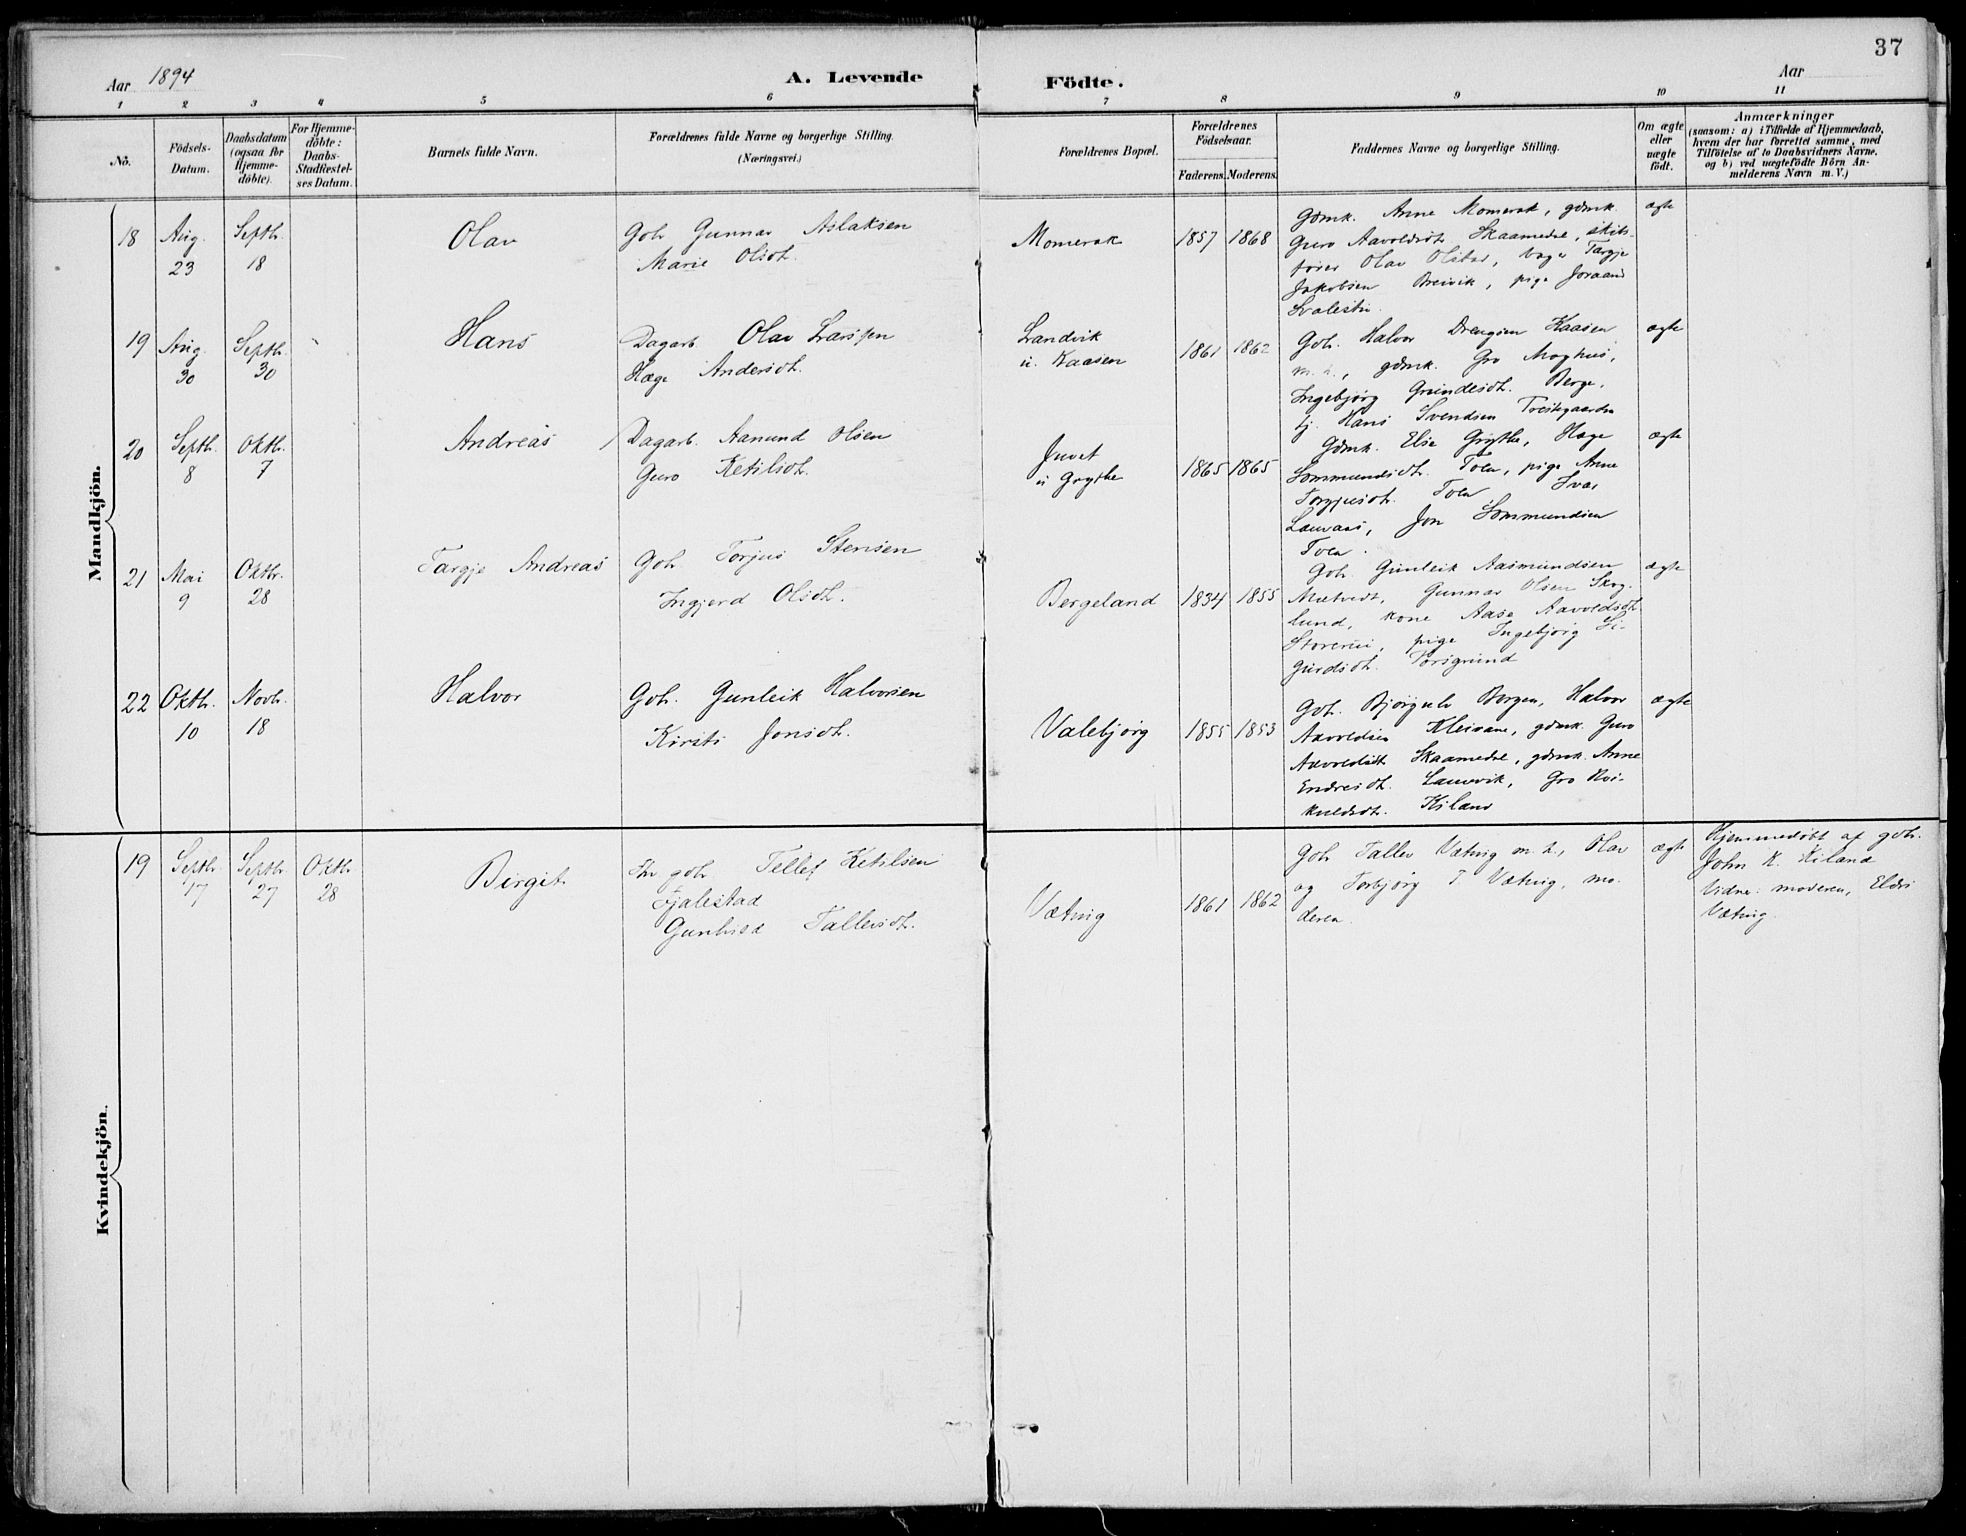 37
Aar 1894
A. Levende
Födte.
Aar
1 2 3 4 5 6 7 8 9 10 11
No.
Födsels-
Datum.
Daabsdatum
(ogsaa for
Hjemme-
döbte).
For Hjemme-
döbte:
Daabs-
Stadfæstel-
ses Datum.
Barnets fulde Navn.
Forældrenes fulde Navne og borgerlige Stilling.
(Næringsvei.)
Forældrenes Bopæl.
Forældrenes
Födselsaar.
Faderens. Moderens.
Faddernes Navne og borgerlige Stilling.
Om ægte
eller
uægte
födt.
Anmærkninger
(saasom: a) i Tilfælde af Hjemmedaab,
hvem der har forrettet samme, med
Tilföielse af to Daabsvidners Navne,
og b) ved uægtefödte Börn An-
melderens Navn m. V.)
Mandkjön.
18
Aug.
23
Septbr.
18
Olav
Gbr Gunnar Aslaksen
Marie Olsdt.
Momerak
1857 1868
Gdmk. Anne Momerak, gdmk.
Guro Aavoldsdt Skaamedal, skibs-
fører Olav Olstad, bager Targje
Jakobsen Breivik, pige Joraand
Svalestu.
ægte
19
Aug.
30
Septbr.
30
Hans
Dagarb. Olav Larssen
Hæge Andersdt.
Landvik
u. Kaasen
1861 1862
Gbr. Halvor Drengsen Kaasen
m. h., gdmk. Gro Moghus,
Ingebjørg Grundesdt. Berge,
tj. Hans Svendsen Treskgaarden
ægte
20
Septbr.
8
Oktbr.
7
Andreas
Dagarb. Aanund Olsen
Guro Ketilsdt.
Juvet
u Grythe
1865 1865
Gdmk. Else Grythe, Hæge
Sommundsdt. Toen, pige Anne
Torgjusdt. Toen Ivar
Lauvaas, Jon Sommundsen
Toen.
ægte
21
Mai
9
Oktbr.
28
Targje Andreas
Gbr Torjus Stensen
Ingjerd Olsdt.
Bergeland
1834 1855
Gbr. Gunleik Aasmundsen
Mætvedt, Gunnar Olsen Skog-
lund, kone Aase Aavoldsdt
Storerui, pige Ingebjørg Si-
gurdsdt. Porsgrund
ægte
22
Oktbr.
10
Novbr.
18
Halvor
Gbr. Gunleik Halvorsen
Kirsti Jonsdt.
Valebjørg
1855 1853
Gbr. Bjørgulv Borgen, Halvor
Aavoldsen Kleivane, gdmk. Guro
Aavoldsdt Skaamedal, gdmk. Anne
Endresdt. Lauvvik, Gro Rei-
kuldsdt. Kiland
ægte
Kvindekjön.
19
Septbr.
17
Septbr
27
Oktbr
28
Birgit
Fhv gbr Tellef Ketilsen
Fjalestad
Gunhild Tallevsdt.
Vætnig
1861 1862
Gbr Tallev Vætnig m. h., Olav
og Torbjørg T. Vætnig, mo-
deren.
ægte
Hjemmedøbt af gbr.
John K. Kiland
Vidne: moderen, Eldri
Vætnig.